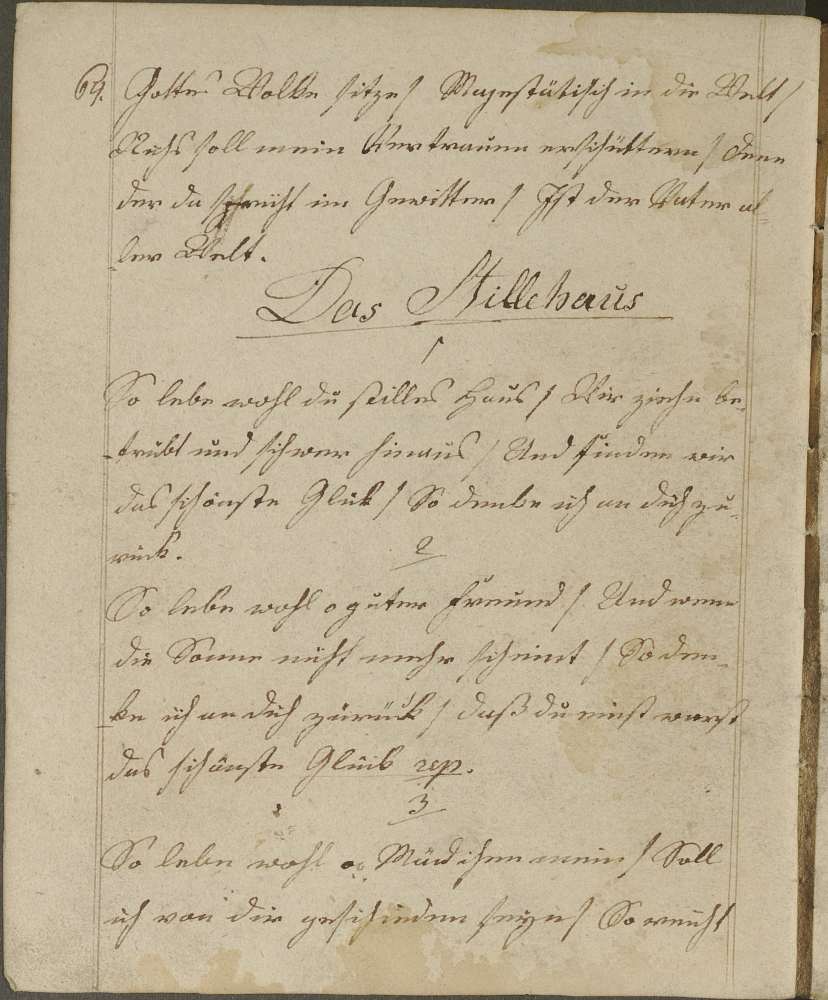 69. Gottes Wolke sitze / Majestätisch in die Welt /
Nichts soll mein Vertrauen erschüttern / denn
der da spricht im Gewitter / Ist der Vater al-
-ler Welt.
Das Stillehaus
1
So lebe wohl du stilles Haus / Wir ziehn be-
-trübt und schwer hinaus / Und finden wir
das schönste Glük / So denke ich an dich zu-
rück.
2
So lebe wohl o guter Freund / Und wenn
die Sonne nicht mehr scheint / So den-
-ke ich an dich zurück / daß du einst warst
das schönste Glück rep.
3
So lebe wohl o Mädchen mein / Soll
ich von dir geschieden seyn / So reicht